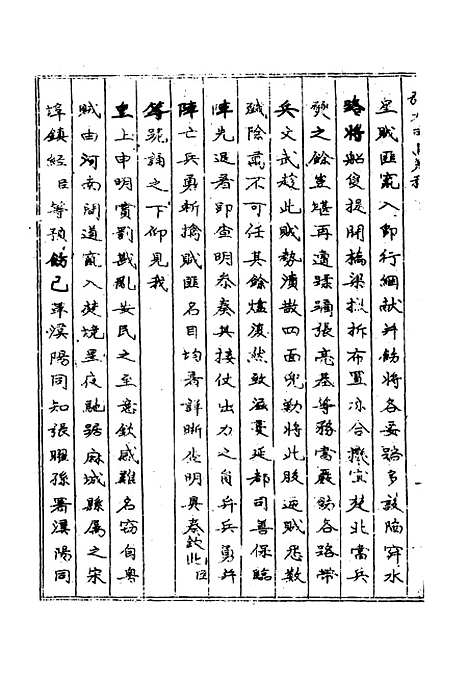 呈賊匪竄入即行綑献并飭將各要路多設陷穽水
路將船隻提開橋梁拟拆布置亦合機宜楚北當兵
燹之餘豈堪再遭蹂躏張亮基等務當嚴飭各路帶
兵文武趁此賊勢潰散四面兜勒將此股逆賊悉數
殲除萬不可任其餘燼復然致滋蔓延都司善保臨
陣先退着即查明叅奏其接仗出力之員弁兵勇并
陣亡兵勇斬擒賊匪名目均着詳晰查明具奏欽此臣
等跪誦之下仰見我
皇上申明賞罰戡亂安民之至意欽感難名竊自粵
賊由河南間道竄入楚境星夜馳踞麻城縣属之宋
埠鎮經臣等預飭已革漢陽同知張曜孫署漢陽同